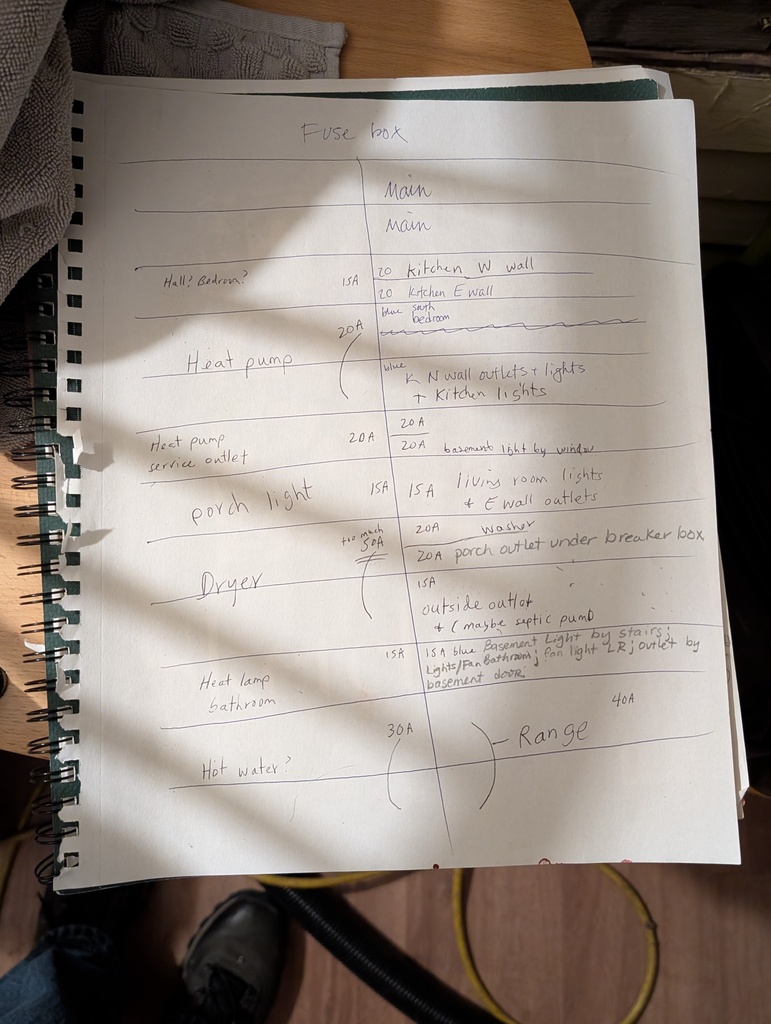 Fuse box
Main
Main
Hall? Bedroom? 15A
20 Kitchen W wall
20 Kitchen E wall
blue south
bedroom
20A
Heat pump
blue
K N wall outlets + lights
+ Kitchen lights
Heat pump
service outlet
20A
20A
20A basement light by window
porch light 15A
15A living room lights
+ E wall outlets
too much
50A
Dryer
20A washer
20A porch outlet under breaker box
15A
outside outlet
+ (maybe septic pump)
15A
Heat lamp
bathroom
15A blue Basement Light by stairs;
Lights/Fan Bathroom; fan light LR; outlet by
basement door.
30A
Hot water?
40A
Range